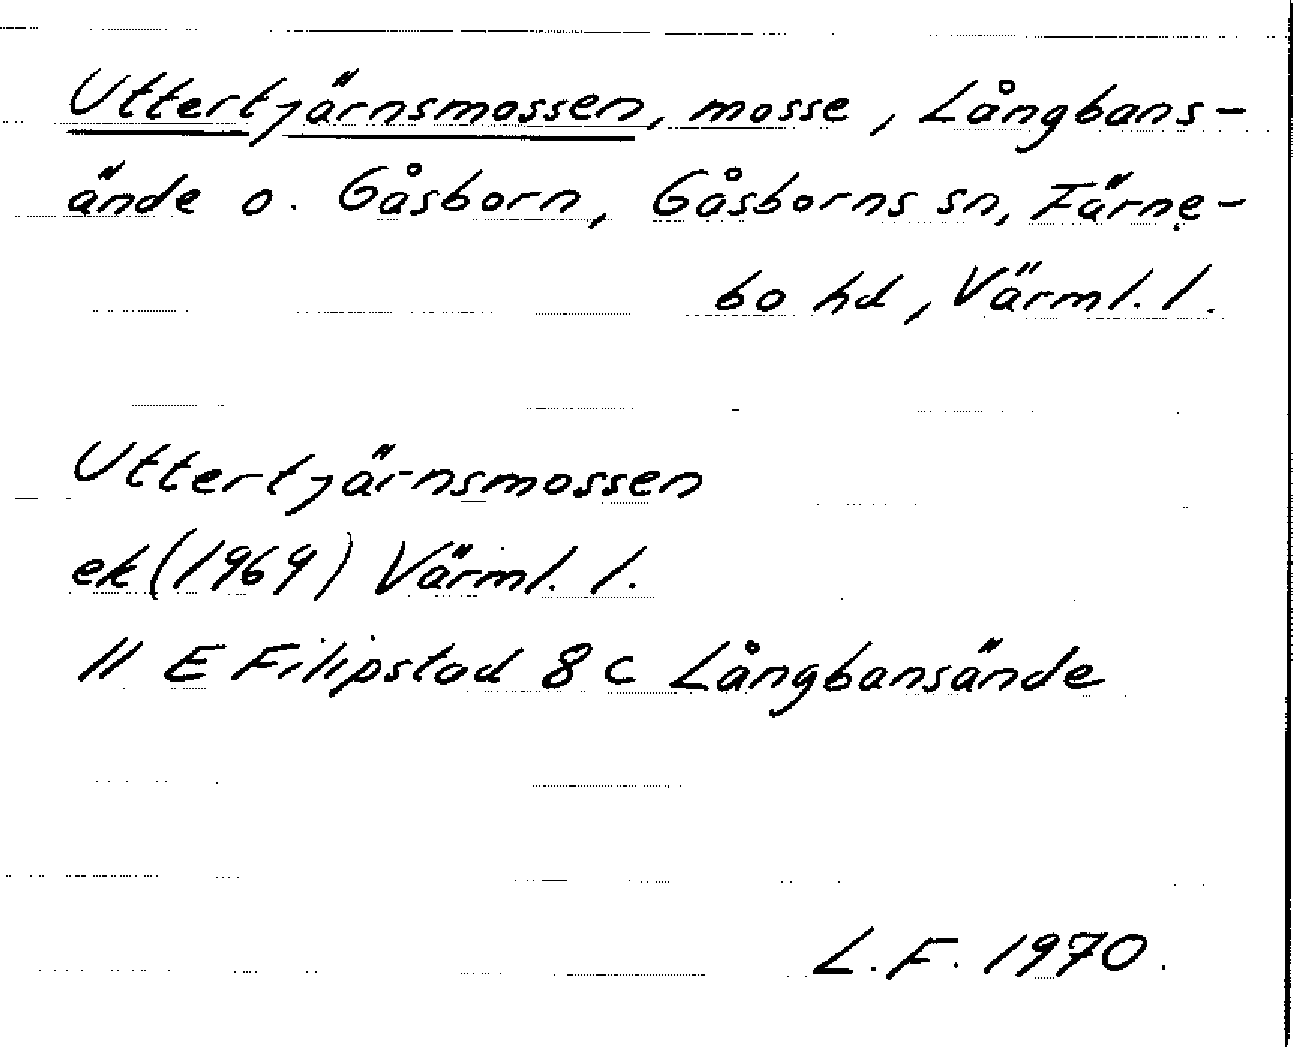 Uttertjärnsmossen, mosse, Långbans-
ände o. Gåsborn, Gåsborns sn, Färne-
bo hd, Värml. l.
Uttertjärnsmossen
ek (1969) Värml. l.
11 E Filipstad 8 c Långbansände
L.F. 1970.